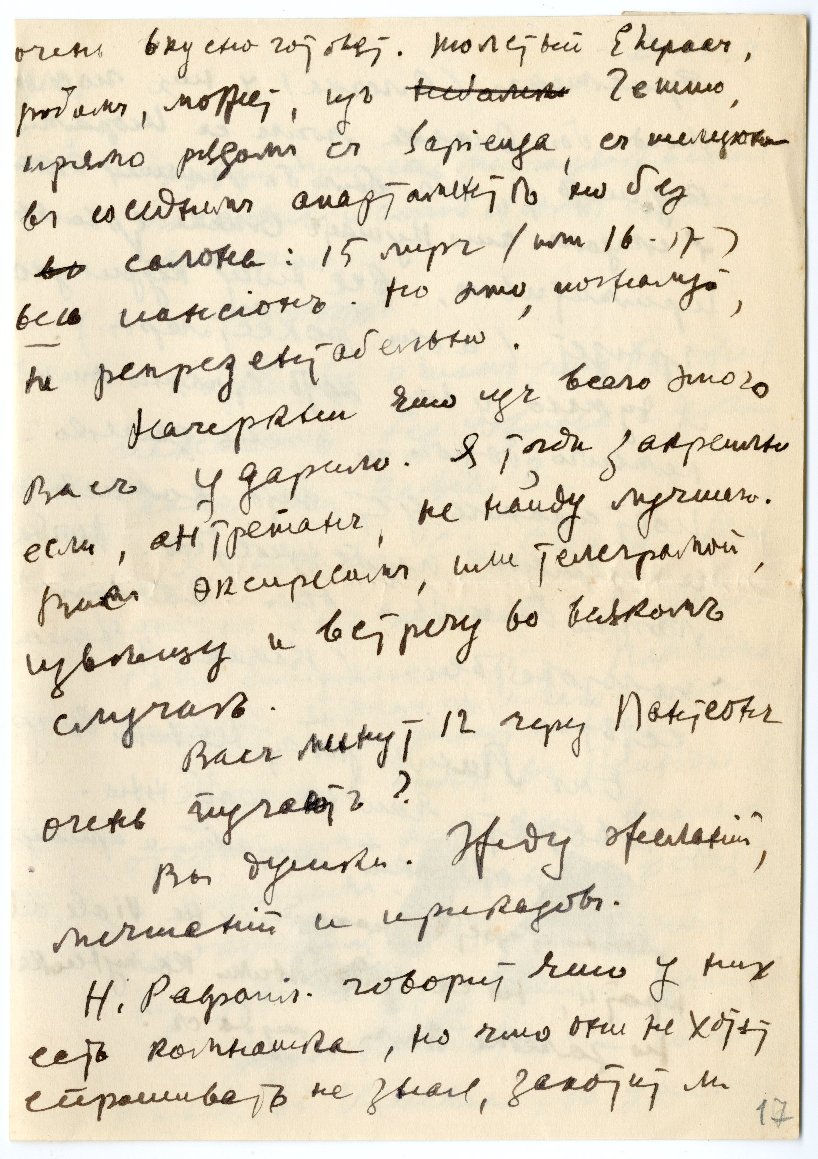 очень вкусно готовят. Толстый Еврей,
родомъ, может, изъ Гетто,
прямо рядомъ съ Sapienza, съ
въ соседнимъ апартаментѣ но без
салона: 15 лиръ (или 16-17)
весь пансiонъ. Но это, пожалуй,
не репрезентабельно.
Начеркни что изъ всего этого
Васъ ударило. Я тогда закреплю
если, антретанъ, не найду лучшаго.
Вамъ экспрессомъ, или телеграмой,
извѣщу и встречу во всякомъ
случаѣ.
Васъ минут 12 черезъ Пантеонъ
очень пугаютъ?
Вы душка. Жду желанiй,
мечтанiй и приказовъ.
Н. говорит что у них
есть комнатка, но что они не хотят
спрашивать не зная, захотит ли
17